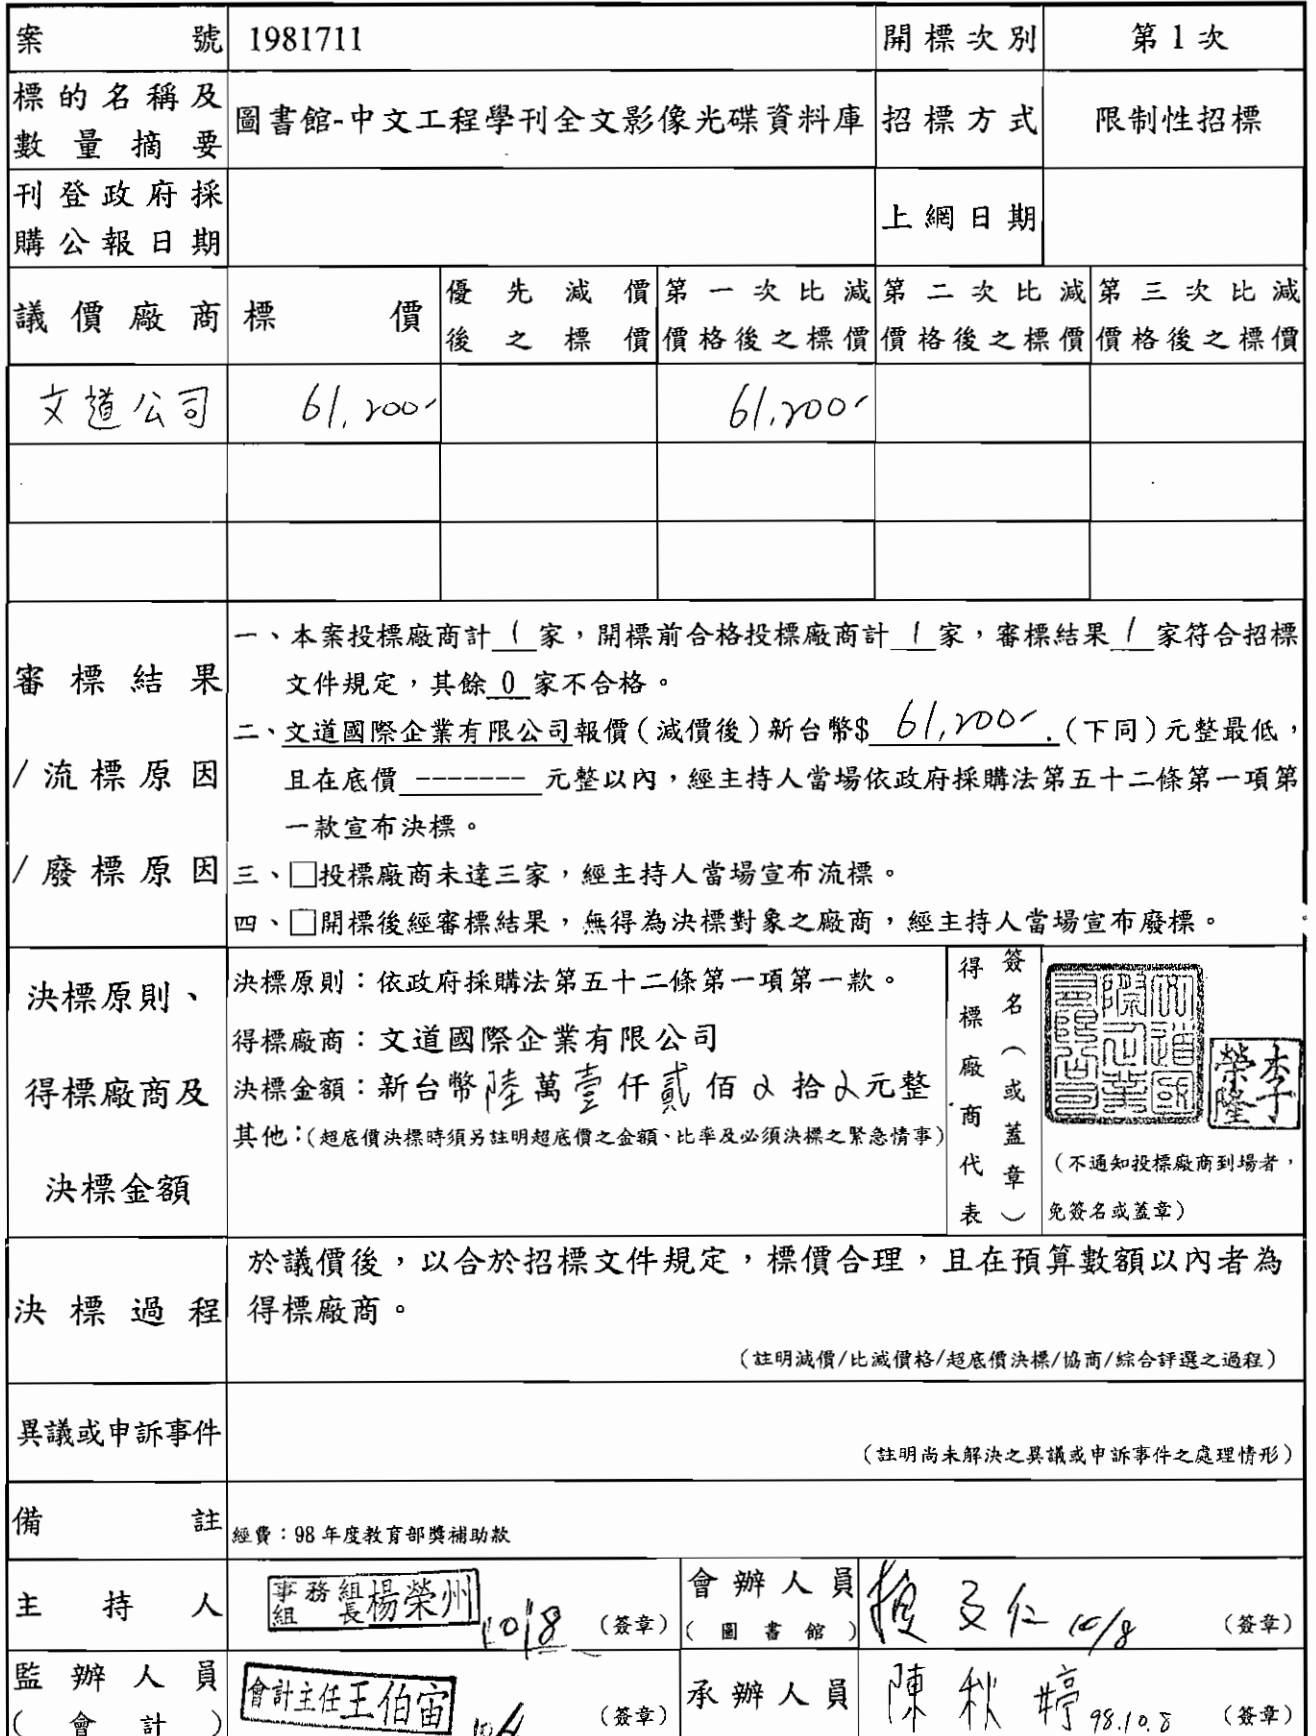 案號 1981711 開標次別 第1次
標的名稱及
數量摘要 圖書館-中文工程學刊全文影像光碟資料庫 招標方式 限制性招標
刊登政府採
購公報日期 上網日期
議價廠商 標價 優先減價 第一次比減 第二次比減 第三次比減
後之標價 價格後之標價 價格後之標價 價格後之標價
文道公司 61,200- 61,200-
審標結果
/流標原因
/廢標原因
一、本案投標廠商計 1 家，開標前合格投標廠商計 1 家，審標結果 1 家符合招標
文件規定，其餘 0 家不合格。
二、文道國際企業有限公司報價（減價後）新台幣$ 61,200- .（下同）元整最低，
且在底價 ------- 元整以內，經主持人當場依政府採購法第五十二條第一項第
一款宣布決標。
三、□投標廠商未達三家，經主持人當場宣布流標。
四、□開標後經審標結果，無得為決標對象之廠商，經主持人當場宣布廢標。
決標原則、
得標廠商及
決標金額
決標原則：依政府採購法第五十二條第一項第一款。
得標廠商：文道國際企業有限公司
決標金額：新台幣陸萬壹仟貳佰 拾 元整
其他：（超底價決標時須另註明超底價之金額、比率及必須決標之緊急情事）
得標廠商代表
簽名（或蓋章）
文道國際企業有限公司
李榮隆
（不通知投標廠商到場者，
免簽名或蓋章）
決標過程
於議價後，以合於招標文件規定，標價合理，且在預算數額以內者為
得標廠商。
（註明減價/比減價格/超底價決標/協商/綜合評選之過程）
異議或申訴事件
（註明尚未解決之異議或申訴事件之處理情形）
備註 經費：98 年度教育部獎補助款
主持人 事務組組長楊榮州 10/8 （簽章）
會辦人員
（圖書館） 文仁 10/8 （簽章）
監辦人員
（會計） 會計主任王伯宙 （簽章）
承辦人員 陳秋婷 98.10.8 （簽章）